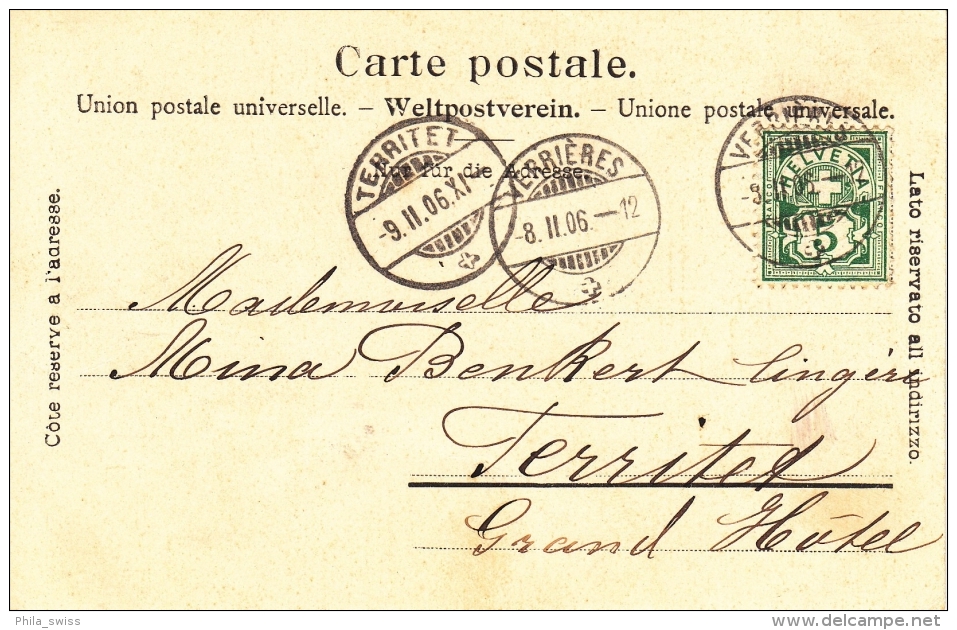 Carte postale.
Union postale universelle. – Weltpostverein. – Unione postale universale.
Nur für die Adresse.
TERRITET
-9.II.06.XI
VERRIÈRES
-8.II.06.-12
VERRIÈRES
HELVETIA
FRANCO
5
Côte reserve a l'adresse.
Lato riservato all indirizzo.
Mademoiselle
Mina Benkert lingère
Territet
Grand Hôtel
Phila_swiss
delcampe.net